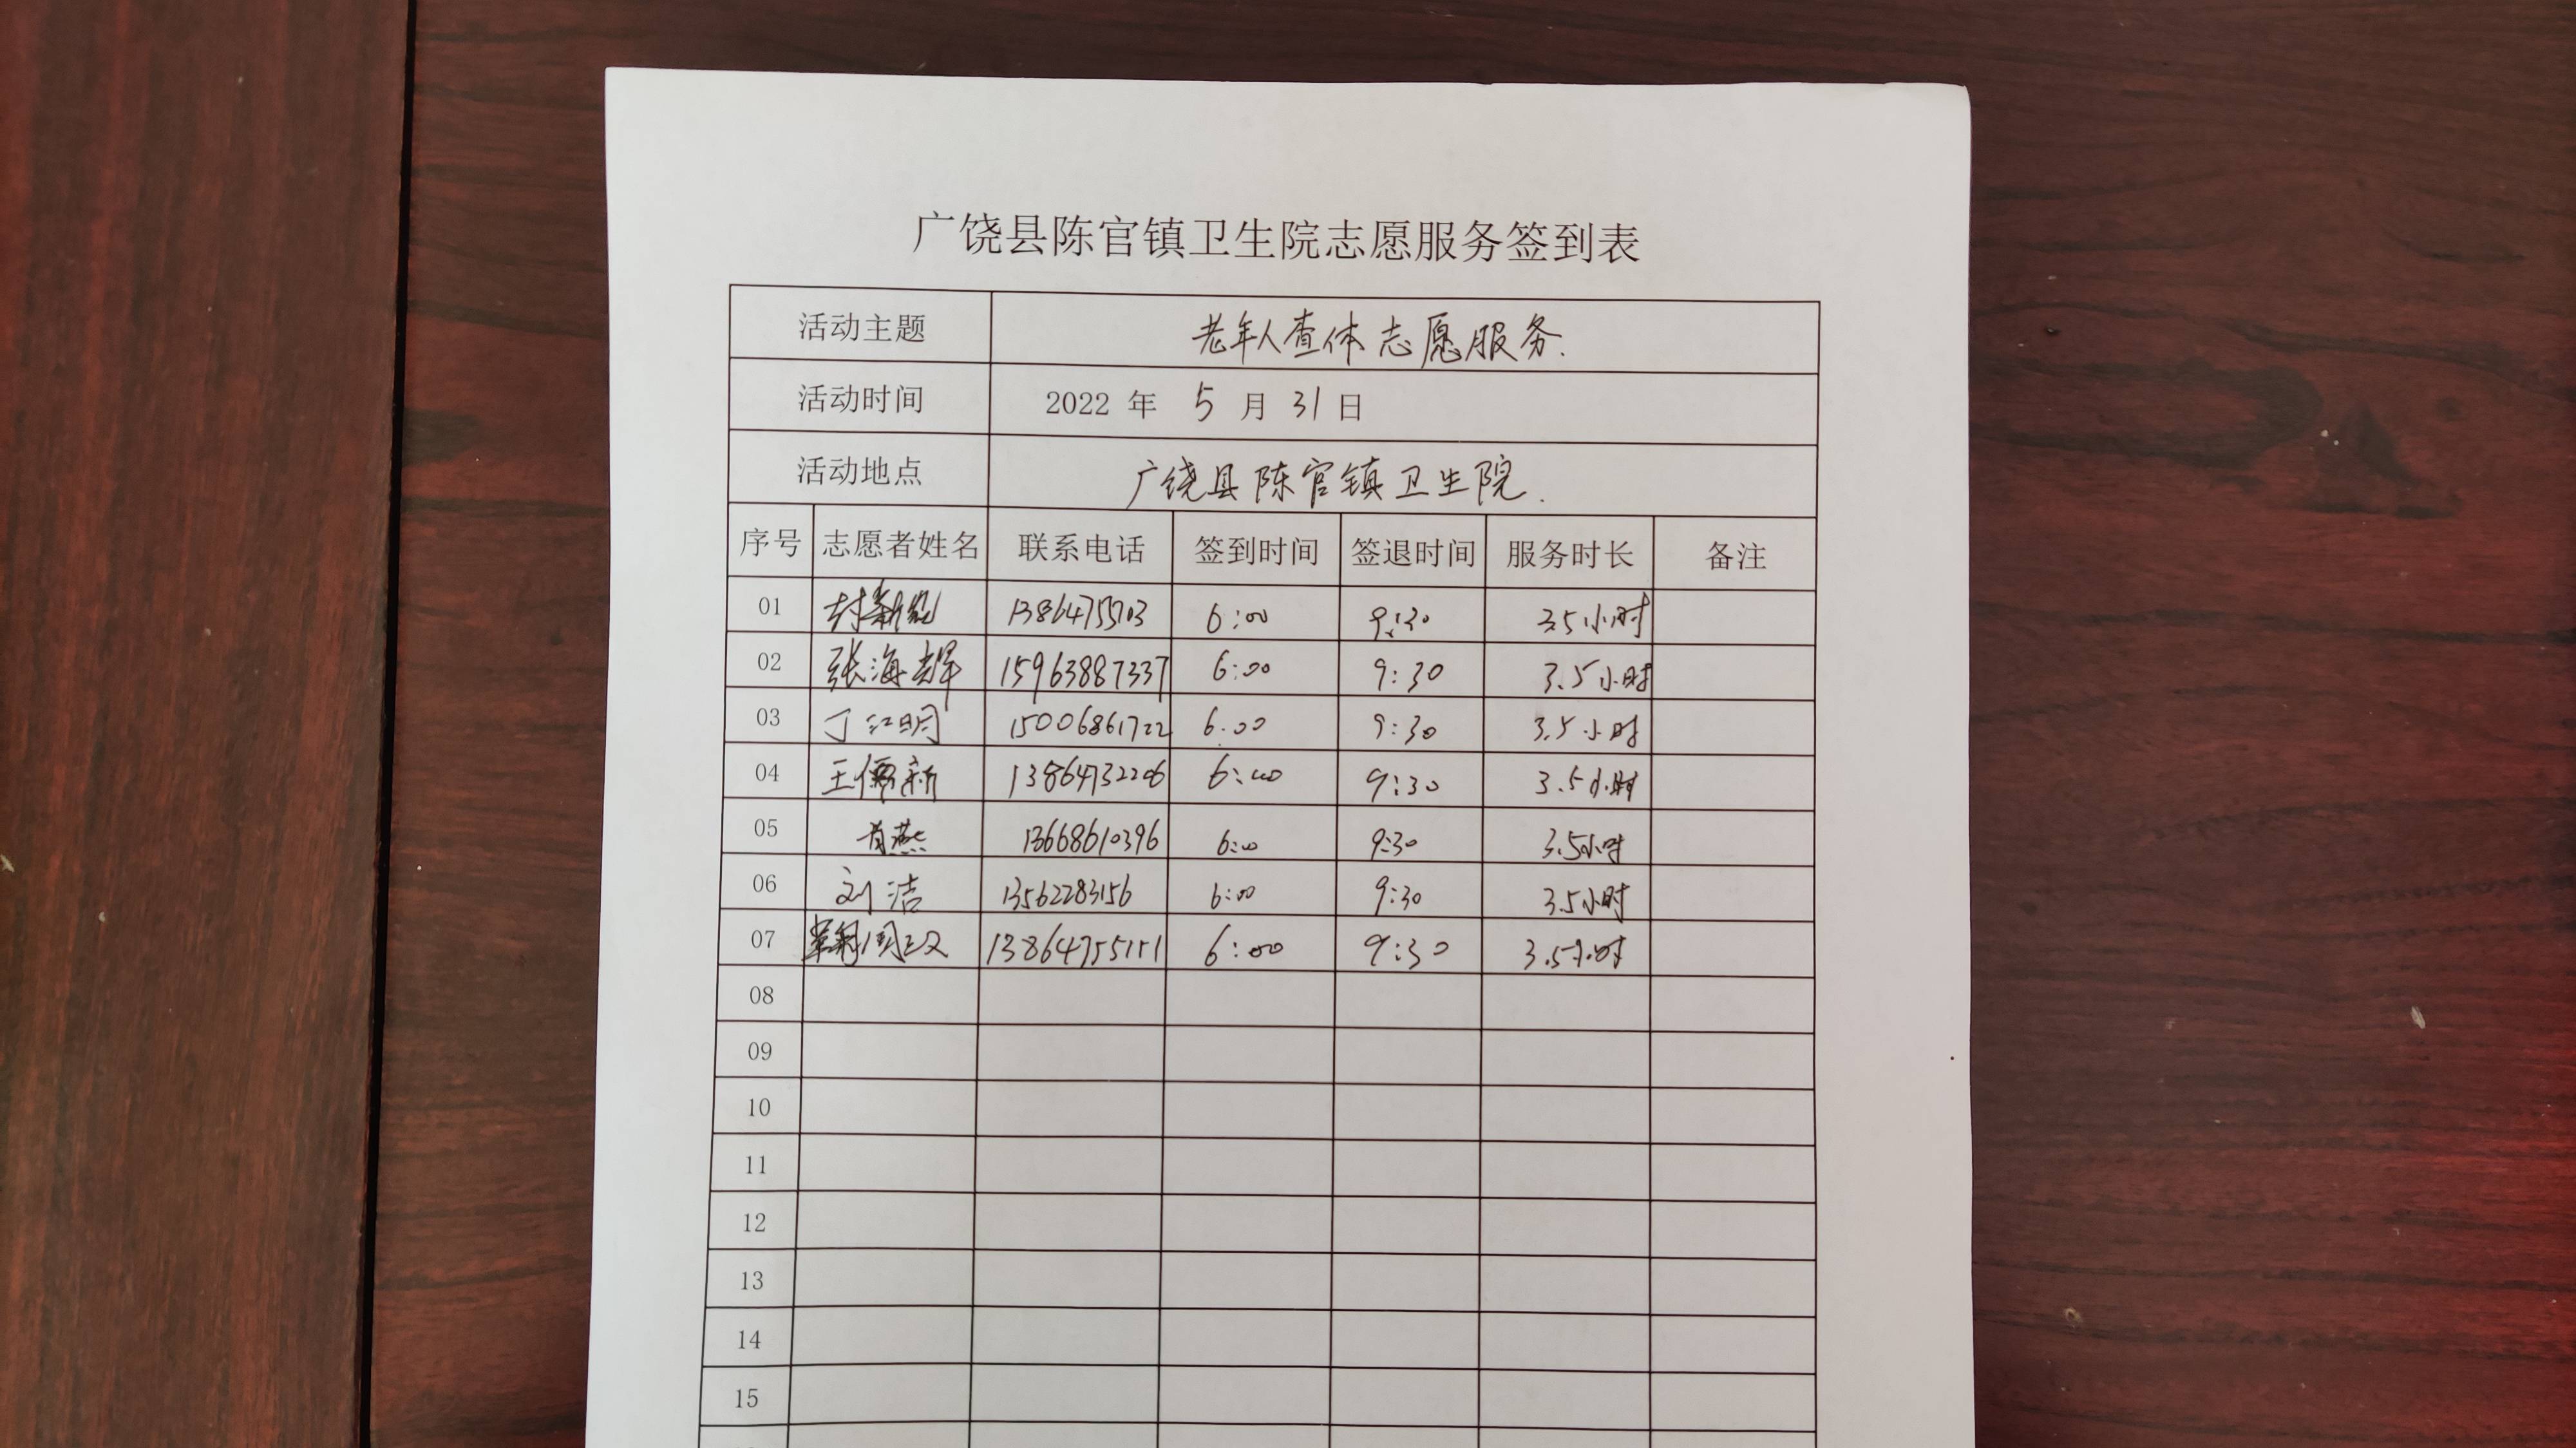 广饶县陈官镇卫生院志愿服务签到表
活动主题 老年人查体志愿服务.
活动时间 2022 年 5 月 31 日
活动地点 广饶县陈官镇卫生院.
序号 志愿者姓名 联系电话 签到时间 签退时间 服务时长 备注
01 6:00 9:30 3.5小时
02 张海辉 15963887337 6:00 9:30 3.5小时
03 丁江明 15006861722 6:00 9:30 3.5小时
04 王儒新 13864732206 6:00 9:30 3.5小时
05 肖燕 13668610396 6:00 9:30 3.5小时
06 刘洁 13562283156 6:00 9:30 3.5小时
07 13864755151 6:00 9:30 3.5小时
08
09
10
11
12
13
14
15